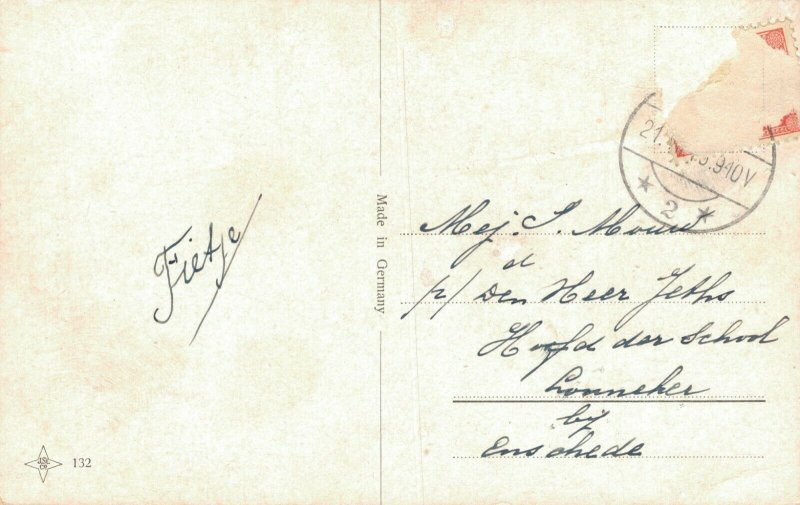 Fietje
Made in Germany
132
21. 9-10V
2
Mej. S.
d
p/ Den Heer Jeths
Hoofd der School
Lonneker
by
Enschede